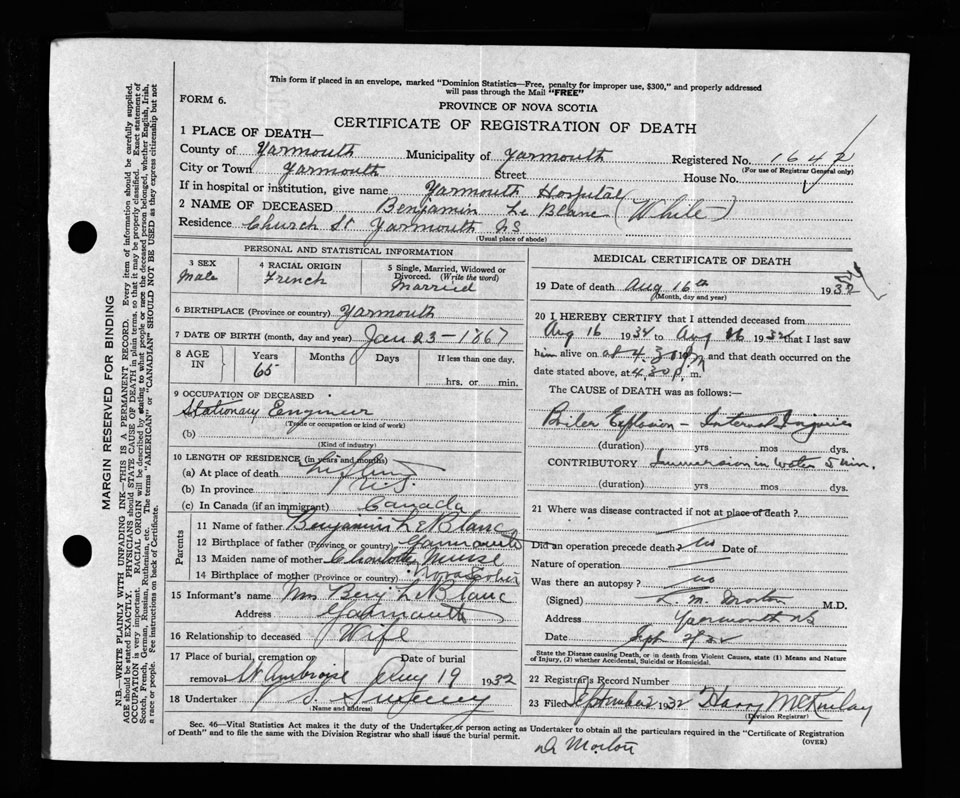 This form if placed in an envelope, marked "Dominion Statistics—Free, penalty for improper use, $300," and properly addressed
will pass through the Mail "FREE"
FORM 6.
PROVINCE OF NOVA SCOTIA
CERTIFICATE OF REGISTRATION OF DEATH
1 PLACE OF DEATH—
County of Yarmouth Municipality of Yarmouth Registered No. 1642
(For use of Registrar General only)
City or Town Yarmouth Street House No.
If in hospital or institution, give name Yarmouth Hospital
2 NAME OF DECEASED Benjamin Le Blanc (White)
Residence Church St Yarmouth NS
(Usual place of abode)
PERSONAL AND STATISTICAL INFORMATION
3 SEX Male
4 RACIAL ORIGIN French
5 Single, Married, Widowed or Divorced. (Write the word) Married
6 BIRTHPLACE (Province or country) Yarmouth
7 DATE OF BIRTH (month, day and year) Jan 23-1867
8 AGE IN Years 65 Months Days If less than one day. hrs. or min.
9 OCCUPATION OF DECEASED
Stationary Engineer
(Trade or occupation or kind of work)
(b)
(Kind of industry)
10 LENGTH OF RESIDENCE (in years and months)
(a) At place of death
(b) In province
(c) In Canada (if an immigrant) Canada
Parents
11 Name of father Benjamin LeBlanc
12 Birthplace of father (Province or country) Yarmouth
13 Maiden name of mother Charlotte Muise
14 Birthplace of mother (Province or country) Nova Scotia
15 Informant's name Mrs Benj LeBlanc
Address Yarmouth
16 Relationship to deceased Wife
17 Place of burial, cremation or removal St Ambroise Date of burial Aug 19 1932
18 Undertaker Sweeny
(Name and address)
MEDICAL CERTIFICATE OF DEATH
19 Date of death Aug 16th 1932
(Month, day and year)
20 I HEREBY CERTIFY that I attended deceased from
Aug 16 1932 to Aug 16 1932 that I last saw
him alive on at 4.30 PM and that death occurred on the
date stated above, at 4.30 p. m.
The CAUSE of DEATH was as follows:—
Boiler Explosion - Internal Injuries
(duration) yrs mos dys.
CONTRIBUTORY Immersion in Water 5 min.
(duration) yrs mos dys.
21 Where was disease contracted if not at place of death?
Did an operation precede death? No Date of
Nature of operation
Was there an autopsy? no
(Signed) L. M. Morton M.D.
Address Yarmouth NS
Date Sept 2/32
State the Disease causing Death, or in death from Violent Causes, state (1) Means and Nature
of Injury, (2) whether Accidental, Suicidal or Homicidal.
22 Registrar's Number
23 Filed September 1932 Harry McKinlay
(Division Registrar)
Sec. 46—Vital Statistics Act makes it the duty of the Undertaker or person acting as Undertaker to obtain all the particulars required in the "Certificate of Registration
of Death" and to file the same with the Division Registrar who shall issue the burial permit.
(OVER)
Dr Morton
MARGIN RESERVED FOR BINDING
N.B.—WRITE PLAINLY WITH UNFADING INK—THIS IS A PERMANENT RECORD. Every item of information should be carefully supplied.
AGE should be stated EXACTLY. PHYSICIANS should STATE CAUSE OF DEATH in plain terms, so that it may be properly classified. Exact statement of
OCCUPATION is very important. RACIAL ORIGIN will be described by stating to what people or race the deceased person belonged, whether English, Irish,
Scotch, French, German, Russian, Ruthenian, etc. The terms "AMERICAN" or "CANADIAN" SHOULD NOT BE USED as they express citizenship but not
a race or people. See instructions on back of Certificate.